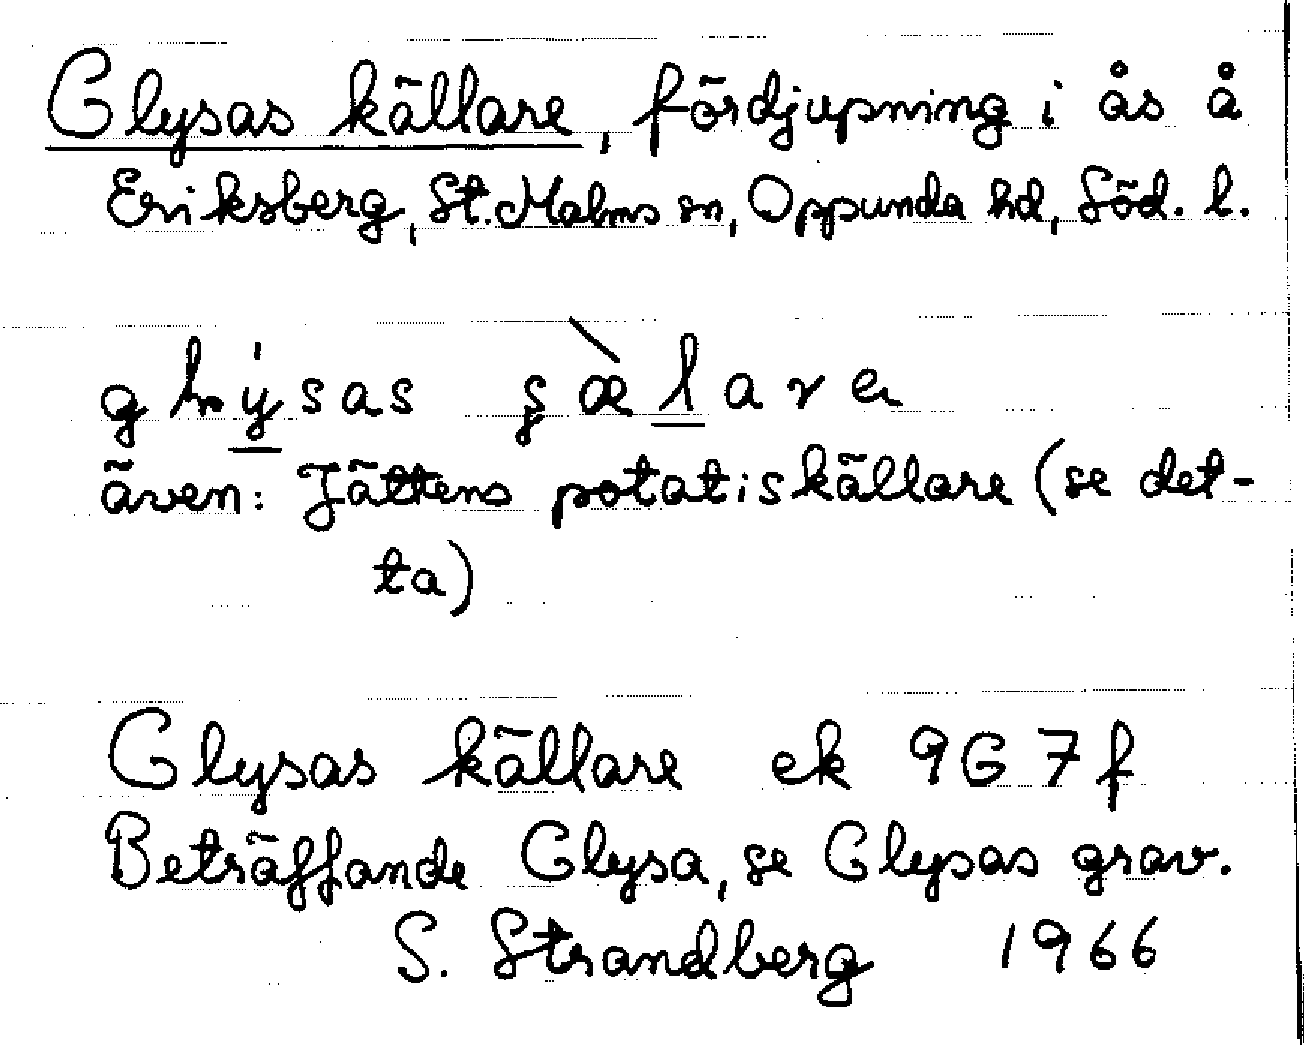 Glysas källare, fördjupning i ås å
Eriksberg, St. Malms sn, Oppunda hd, Söd. l.
även: Jättens potatiskällare (se det-
ta)
Glysas källare ek 9G7f
Beträffande Glysa, se Glysas grav.
S. Strandberg 1966